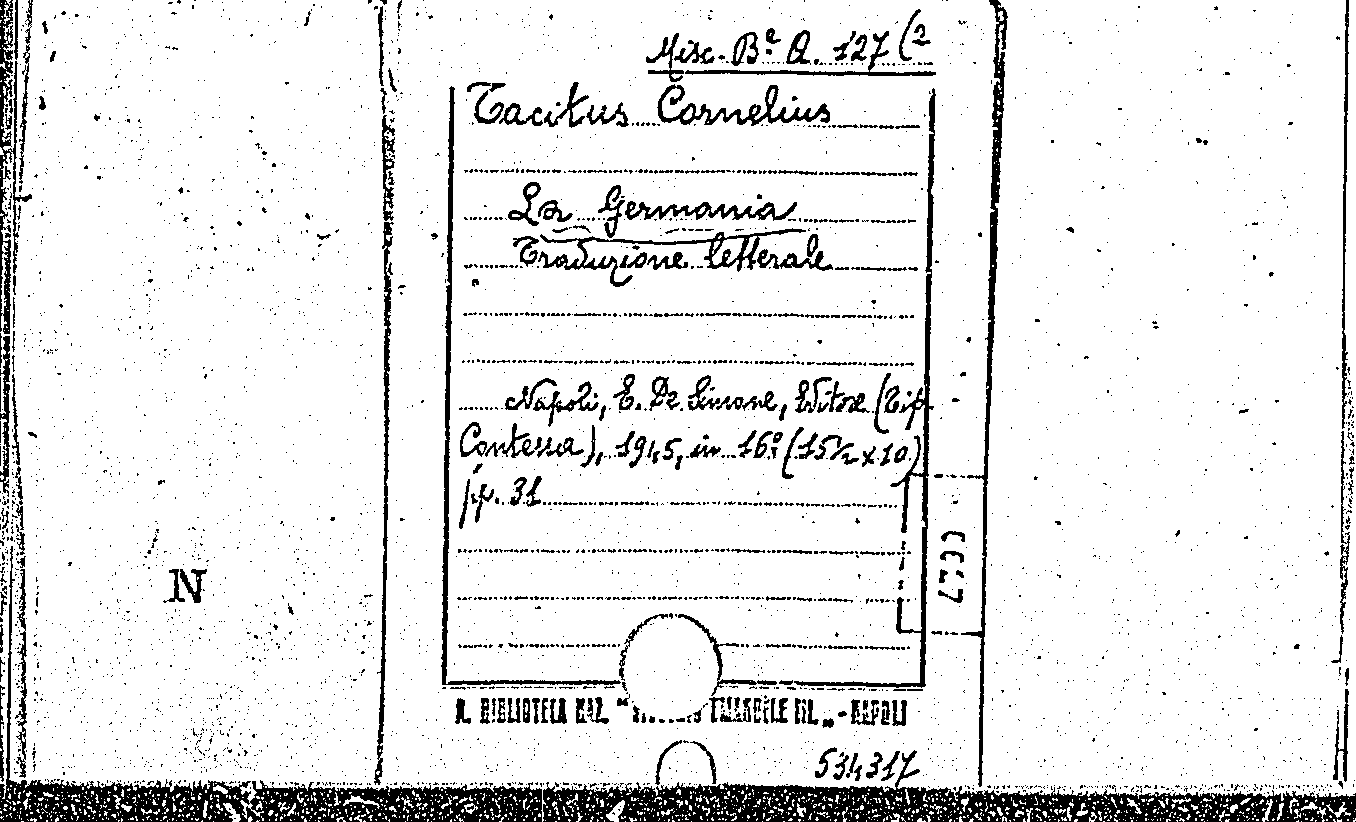 Misc. Bᵃ Q. 127 (2
Tacitus Cornelius
La Germania
Traduzione letterale
Napoli, E. De Simone, Editore (Tip.
Contessa), 1945, in 16.° (15½ x 10)
pp. 31
N
R. BIBLIOTECA NAZ. " EMANUELE III. „ - NAPOLI
534317